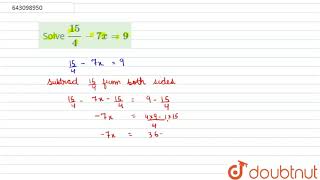 643098950
Solve 15/4 − 7x = 9
15/4 - 7x = 9
subtract 15/4 from both sides
15/4 - 7x - 15/4 = 9 - 15/4
-7x = 4x9-1x15/4
-7x = 36-
doubtnut